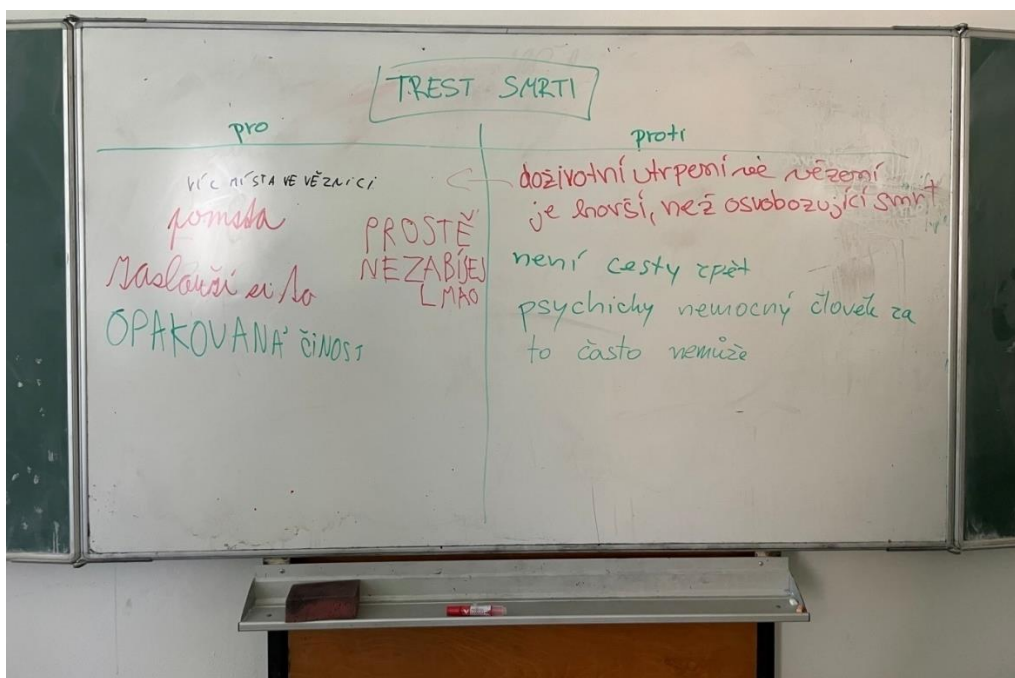 TREST SMRTI
pro
VÍC MÍSTA VE VĚZNICI
pomsta
zaslouží si to
OPAKOVANÁ ČINOST
PROSTĚ
NEZABÍJEJ
LMAO
proti
doživotní utrpení ve vězení
je horší, než osvobozující smrt
není cesty zpět
psychicky nemocný člověk za
to často nemůže